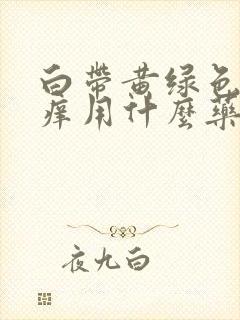 白帶黄绿色
痒用什麼藥
夜九白